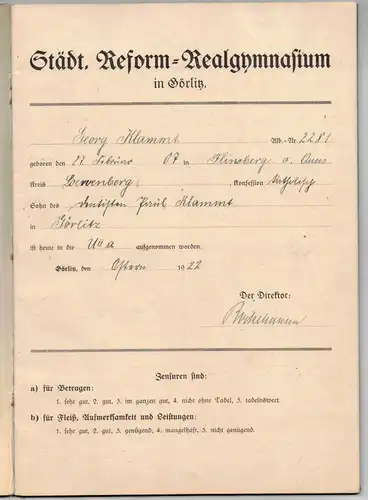 Städt. Reform=Realgymnasium
in Görlitz.
Georg Klammt Alb.-Nr. 2281
geboren den 27. Februar 07 in Flinsberg a. Queis
Kreis Loewenberg, Konfession katholisch
Sohn des Dentisten Paul Klammt
in Görlitz
ist heute in die U II a aufgenommen worden.
Görlitz, den Ostern 1922
Der Direktor:
Zensuren sind:
a) für Betragen:
1. sehr gut, 2. gut, 3. im ganzen gut, 4. nicht ohne Tadel, 5. tadelnswert.
b) für Fleiß, Aufmerksamkeit und Leistungen:
1. sehr gut, 2. gut, 3. genügend, 4. mangelhaft, 5. nicht genügend.